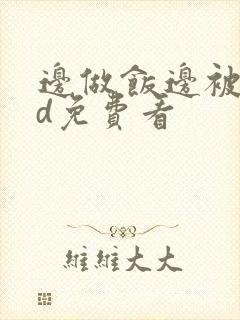 邊做飯邊被
d免費看
維維大大